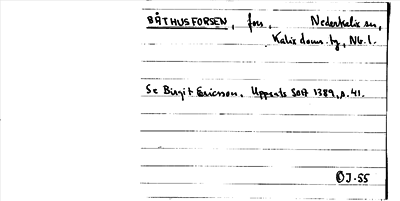 BÅTHUSFORSEN, fors, Nederkalix sn,
Kalix doms. tg, Nb. l.
Se Birgit Ericson. Uppsats SOFI 1389, s. 41.
OJ-55